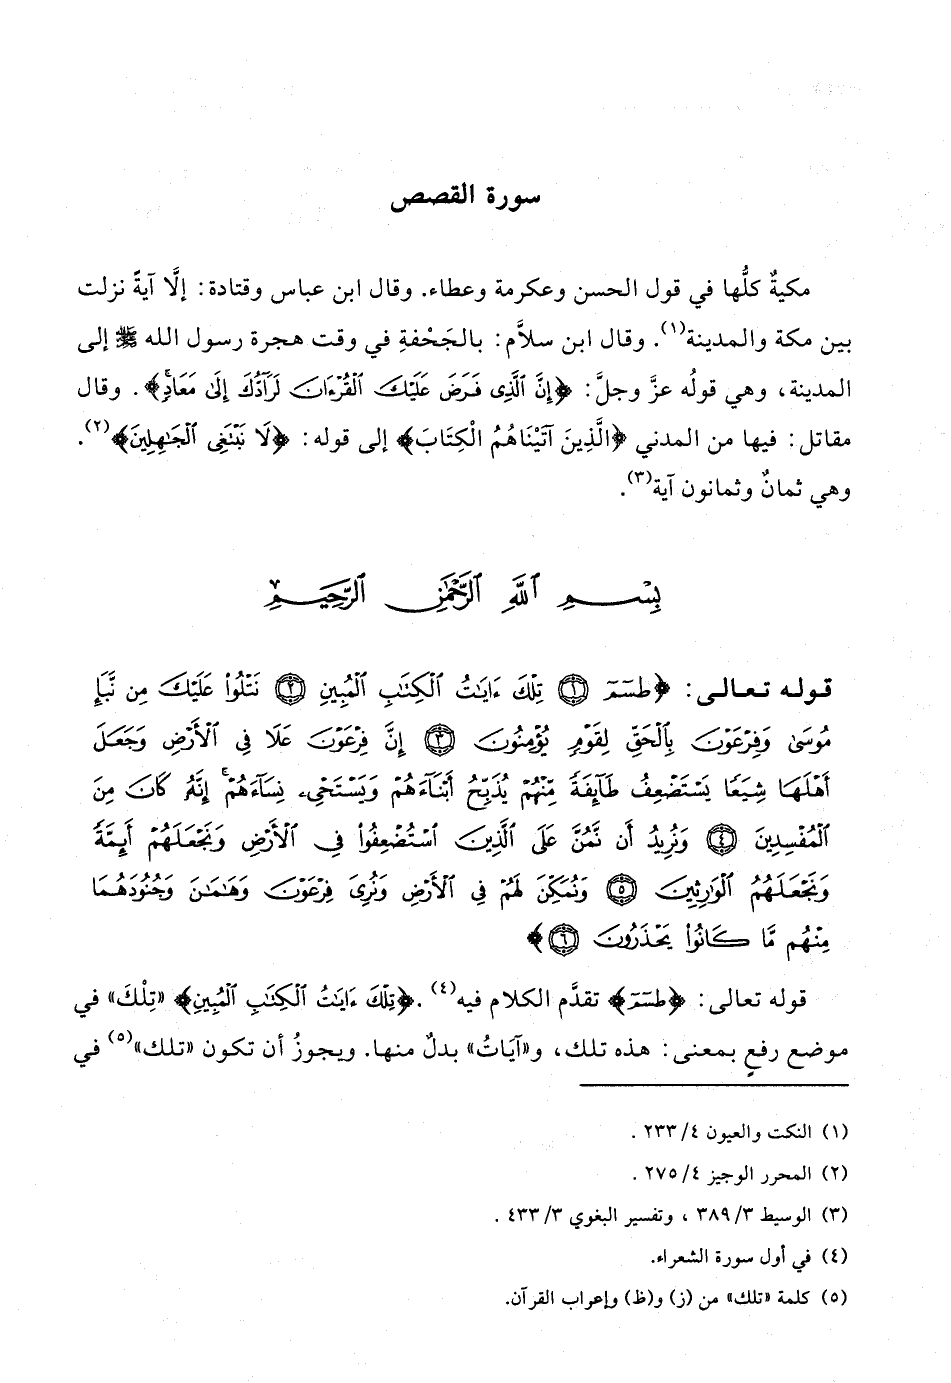 سورة القصص
مكيةٌ كلُّها في قول الحسن وعكرمة وعطاء. وقال ابن عباس وقتادة: إلَّا آيةً نزلت
بين مكة والمدينة(١). وقال ابن سلاَّم: بالجَحْفةِ في وقت هجرة رسول الله ﷺ إلى
المدينة، وهي قولُه عزَّ وجلَّ: ﴿إِنَّ ٱلَّذِى فَرَضَ عَلَيْكَ ٱلْقُرْءَانَ لَرَآدُّكَ إِلَىٰ مَعَادٍۢ﴾. وقال
مقاتل: فيها من المدني ﴿الَّذِينَ آتَيْنَاهُمُ الْكِتَابَ﴾ إلى قوله: ﴿لَا نَبْتَغِى ٱلْجَٰهِلِينَ﴾(٢).
وهي ثمانٌ وثمانون آية(٣).
بِسْمِ ٱللَّهِ ٱلرَّحْمَٰنِ ٱلرَّحِيمِ
قوله تعالى: ﴿طسٓمٓ ۝١ تِلْكَ ءَايَٰتُ ٱلْكِتَٰبِ ٱلْمُبِينِ ۝٢ نَتْلُوا۟ عَلَيْكَ مِن نَّبَإِ
مُوسَىٰ وَفِرْعَوْنَ بِٱلْحَقِّ لِقَوْمٍ يُؤْمِنُونَ ۝٣ إِنَّ فِرْعَوْنَ عَلَا فِى ٱلْأَرْضِ وَجَعَلَ
أَهْلَهَا شِيَعًا يَسْتَضْعِفُ طَآئِفَةً مِّنْهُمْ يُذَبِّحُ أَبْنَآءَهُمْ وَيَسْتَحْىِۦ نِسَآءَهُمْ ۚ إِنَّهُۥ كَانَ مِنَ
ٱلْمُفْسِدِينَ ۝٤ وَنُرِيدُ أَن نَّمُنَّ عَلَى ٱلَّذِينَ ٱسْتُضْعِفُوا۟ فِى ٱلْأَرْضِ وَنَجْعَلَهُمْ أَئِمَّةً
وَنَجْعَلَهُمُ ٱلْوَٰرِثِينَ ۝٥ وَنُمَكِّنَ لَهُمْ فِى ٱلْأَرْضِ وَنُرِىَ فِرْعَوْنَ وَهَٰمَٰنَ وَجُنُودَهُمَا
مِنْهُم مَّا كَانُوا۟ يَحْذَرُونَ ۝٦﴾
قوله تعالى: ﴿طسٓمٓ﴾ تقدَّم الكلام فيه(٤). ﴿تِلْكَ ءَايَٰتُ ٱلْكِتَٰبِ ٱلْمُبِينِ﴾ «تِلْكَ» في
موضع رفعٍ بمعنى: هذه تلك، و«آيَاتُ» بدلٌ منها. ويجوزُ أن تكون «تلك»(٥) في
(١) النكت والعيون ٤/ ٢٣٣ .
(٢) المحرر الوجيز ٤/ ٢٧٥ .
(٣) الوسيط ٣/ ٣٨٩ ، وتفسير البغوي ٣/ ٤٣٣ .
(٤) في أول سورة الشعراء.
(٥) كلمة «تلك» من (ز) و(ظ) وإعراب القرآن.